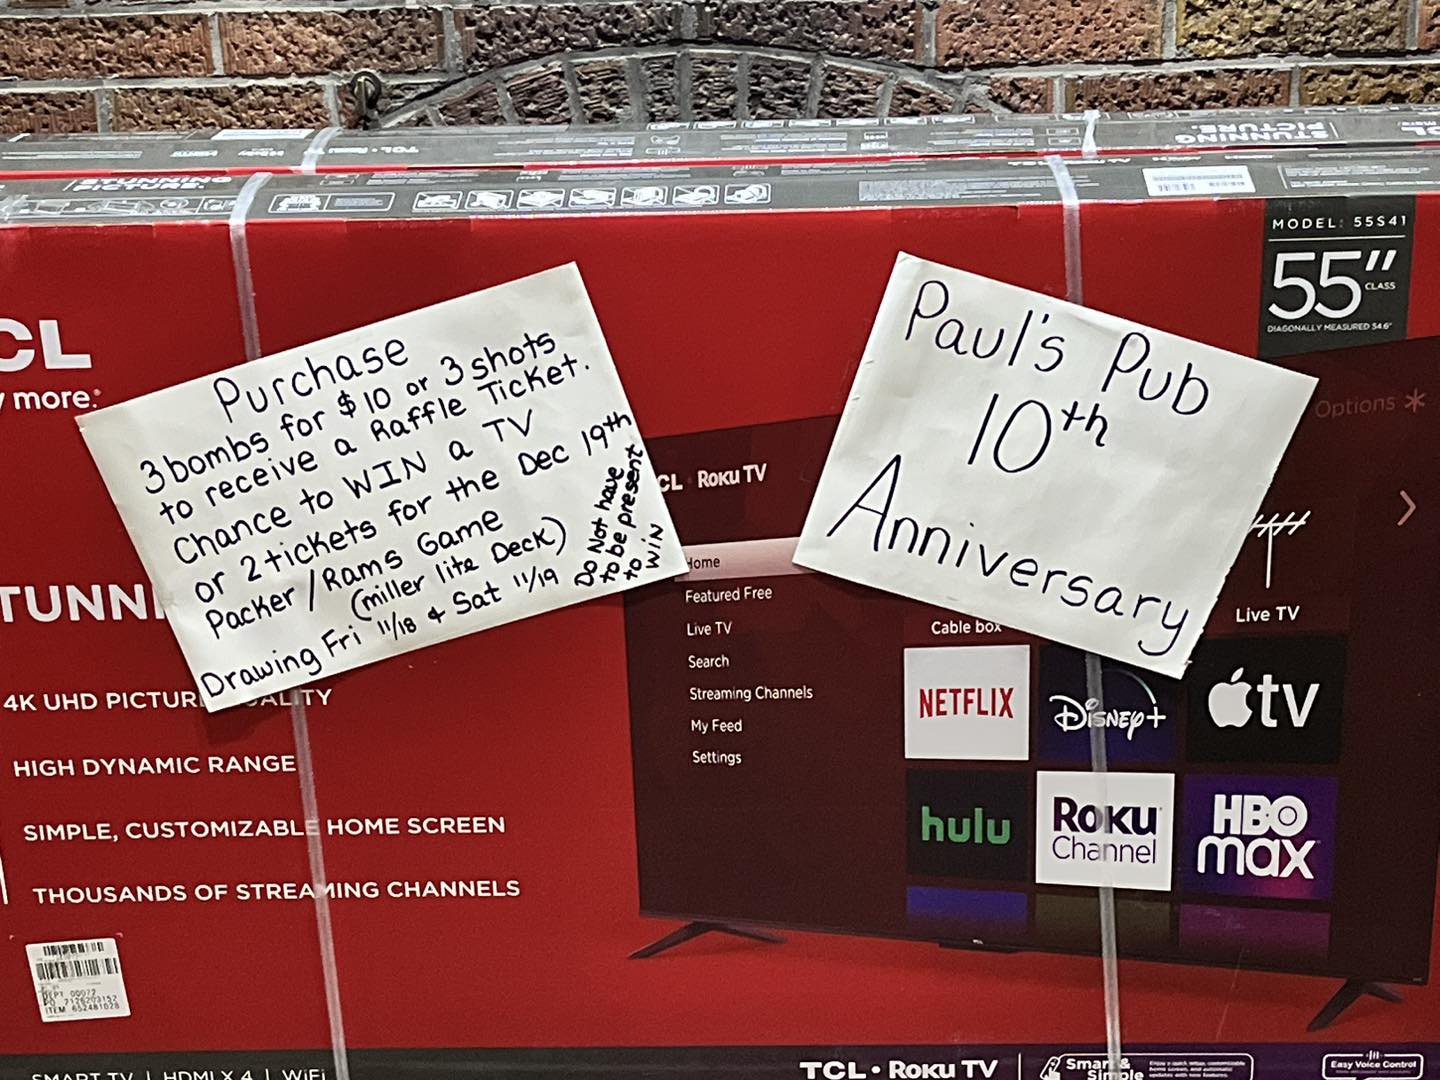 STUNNING
PICTURE.
TCL • Roku
MODEL: 55S41
55"
CLASS
DIAGONALLY MEASURED 54.6"
CL
more.
Purchase
3 bombs for $10 or 3 shots
to receive a Raffle Ticket.
Chance to WIN a TV
or 2 tickets for the Dec 19th
Packer / Rams Game
(miller lite Deck)
Drawing Fri 11/18 & Sat 11/19
Do Not have
to be present
to WIN
Paul's Pub
10th
Anniversary
Options
CL Roku TV
Home
Featured Free
Live TV
Search
Streaming Channels
My Feed
Settings
Cable box
Live TV
NETFLIX
Disney+
tv
hulu
Roku
Channel
HBO
max
TUNNI
4K UHD PICTUR ALITY
HIGH DYNAMIC RANGE
SIMPLE, CUSTOMIZABLE HOME SCREEN
THOUSANDS OF STREAMING CHANNELS
DEPT 00072
PO 7126203152
ITEM 652481628
SMART TV | HDMI X 4 | WiFi
TCL • Roku TV
Smart &
Simple
Easy Voice Control